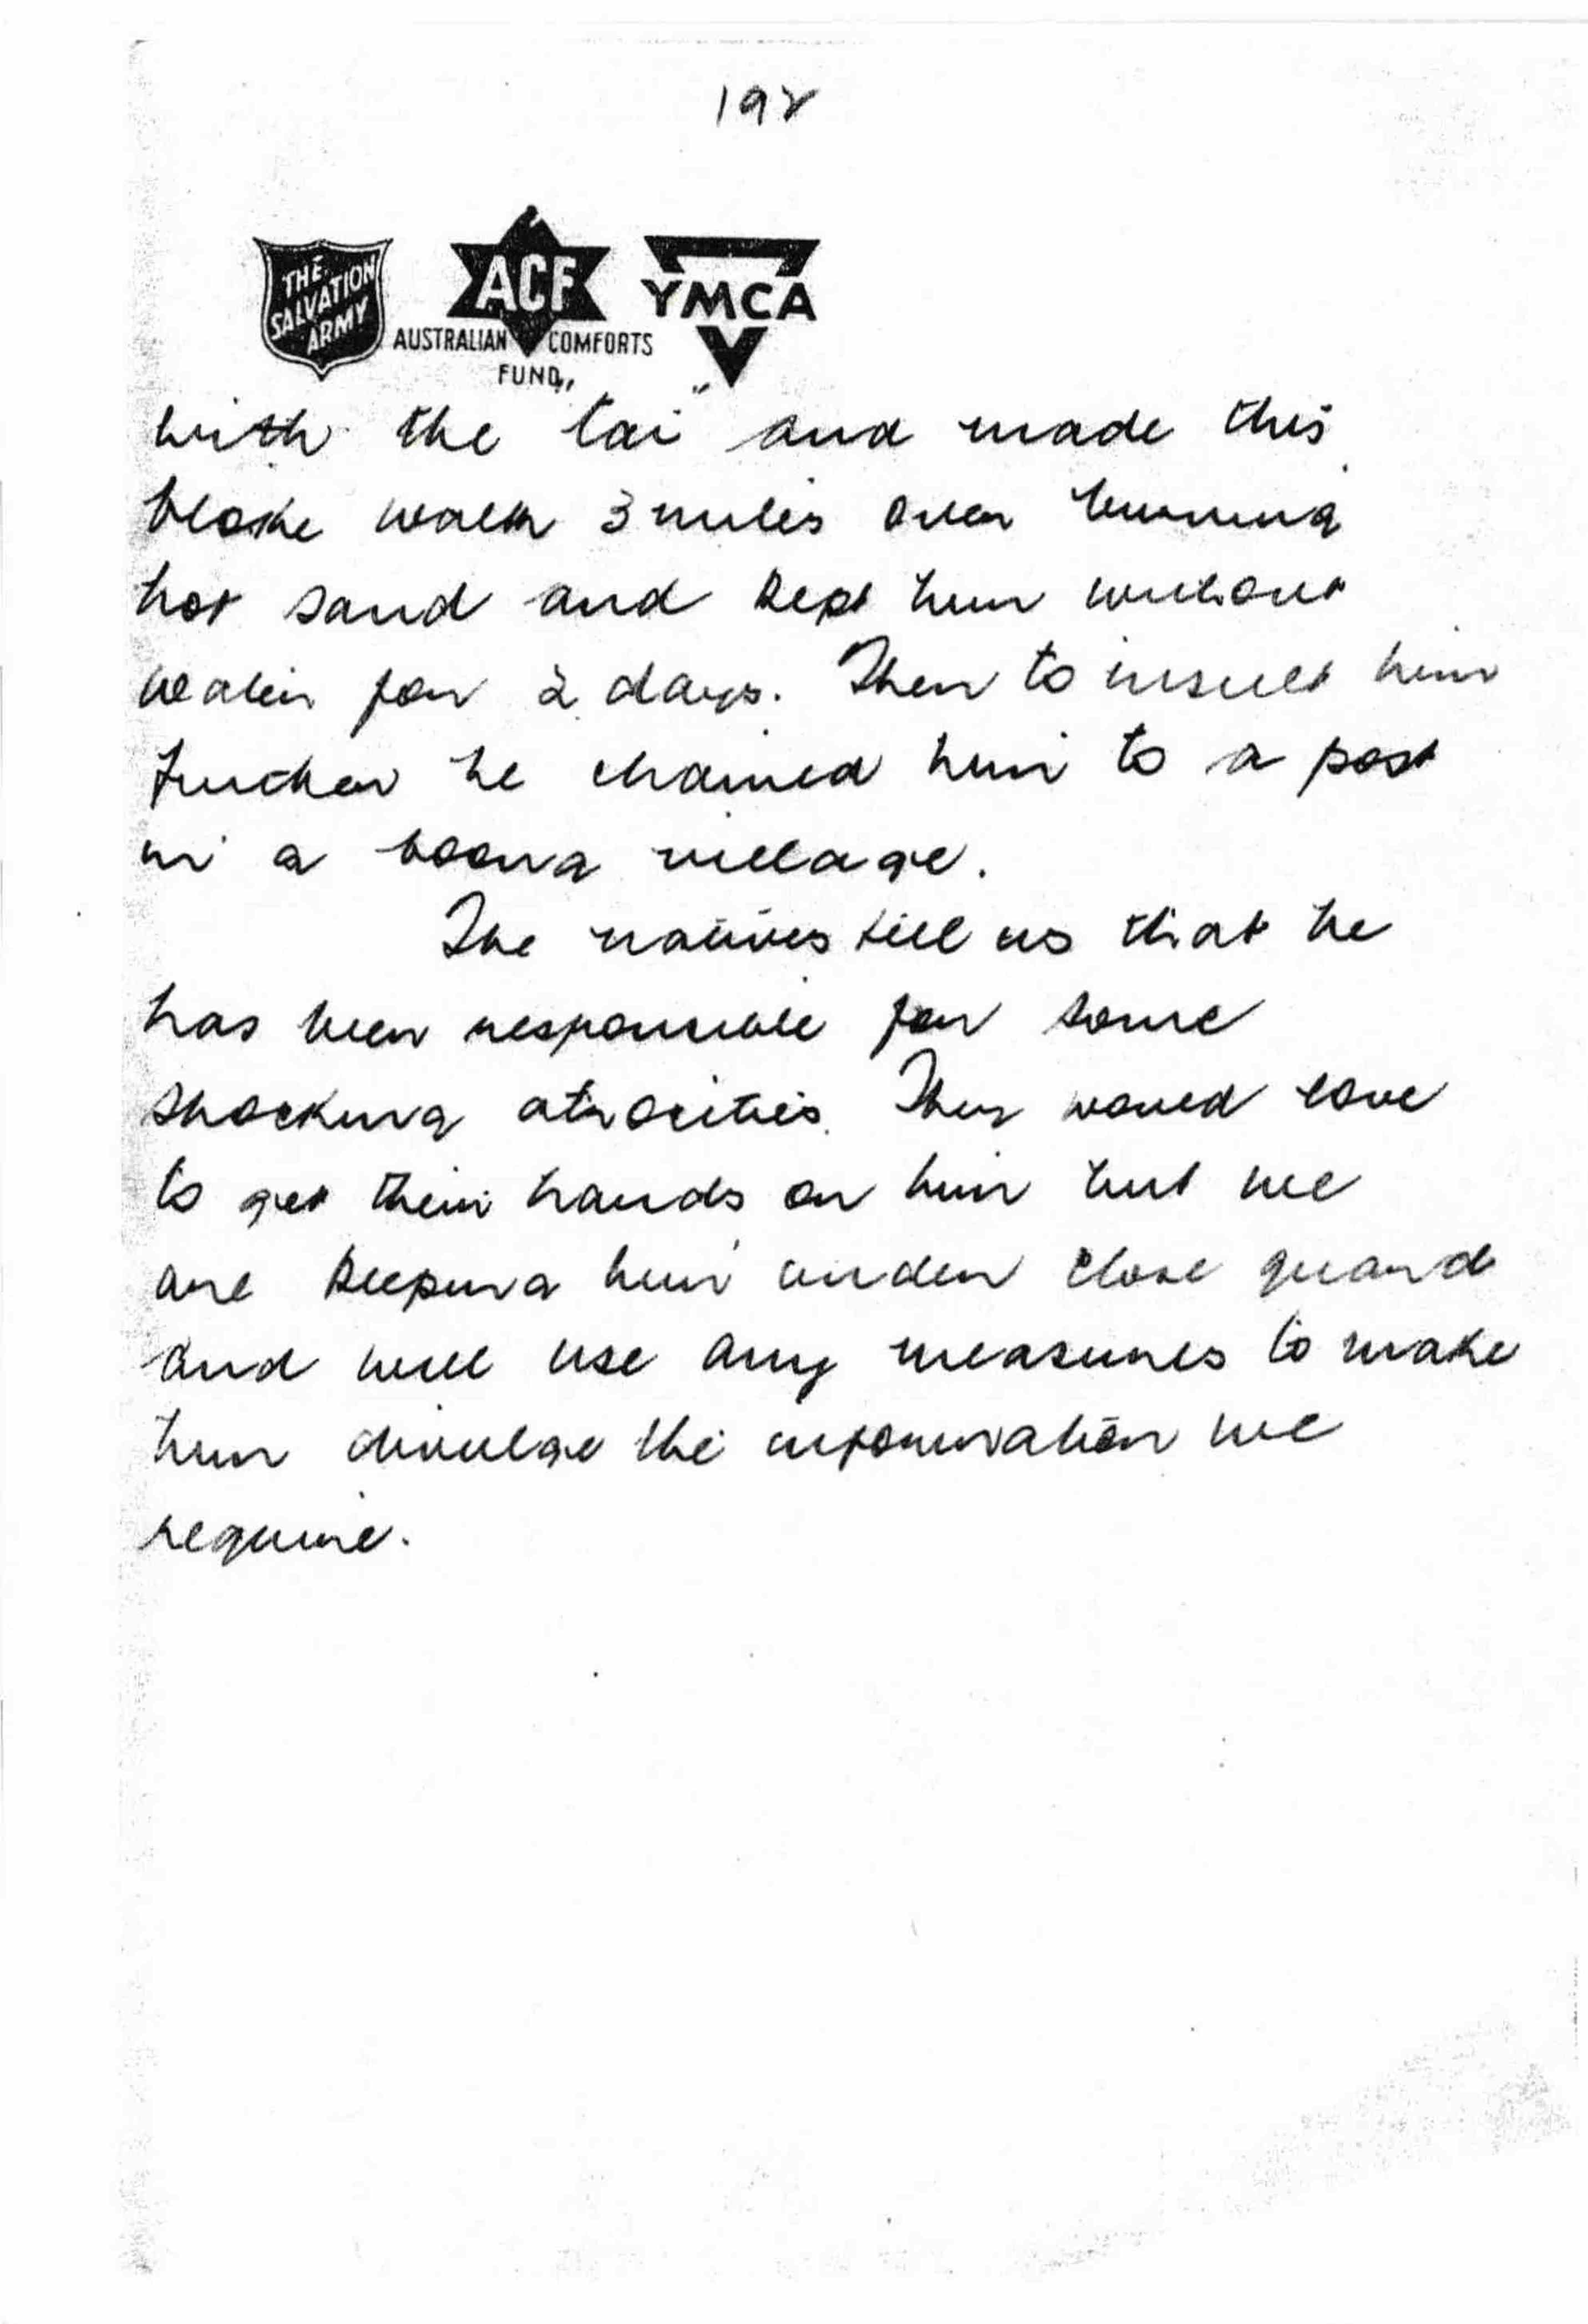 192
THE SALVATION ARMY
ACF
AUSTRALIAN COMFORTS FUND
YMCA
with the "tai" and made this
bloke walk 3 miles over burning
hot sand and kept him without
water for 2 days. Then to insult him
further he chained him to a post
in a boong village.
The natives tell us that he
has been responsible for some
shocking atrocities. They would love
to get their hands on him but we
are keeping him under close guard
and will use any measures to make
him divulge the information we
require.